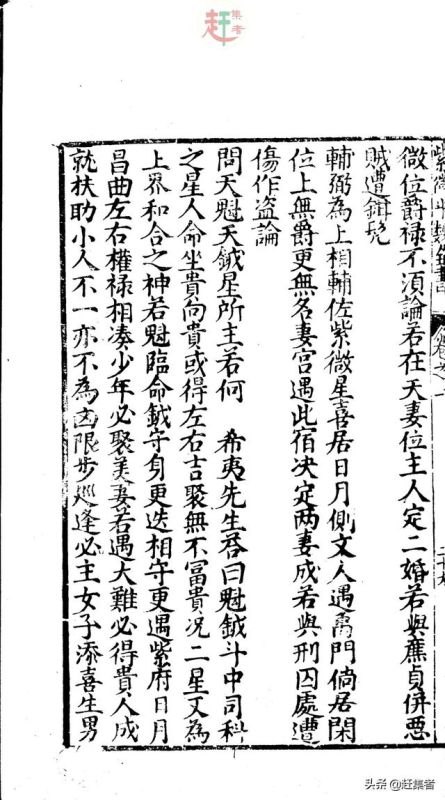 赶集者
微位爵禄不須論若在天妻位主人定二婚若與㢘貞併惡
賊遭鉗髡
輔弼為上相輔佐紫微星喜居日月側文人遇禹門倘居閑
位上無爵更無名妻宮遇此宿决定两妻成若與刑囚處遭
傷作盗論
問天魁天鉞星所主若何 希夷先生荅曰魁鉞斗中司科
之星人命坐貴向貴或得左右吉聚無不冨貴况二星又為
上界和合之神若魁臨命鉞守身更迭相守更遇紫府日月
昌曲左右權禄相凑少年必聚美妻若遇大難必得貴人成
就扶助小人不一亦不為凶限步廵逢必主女子添喜生男
头条 @赶集者